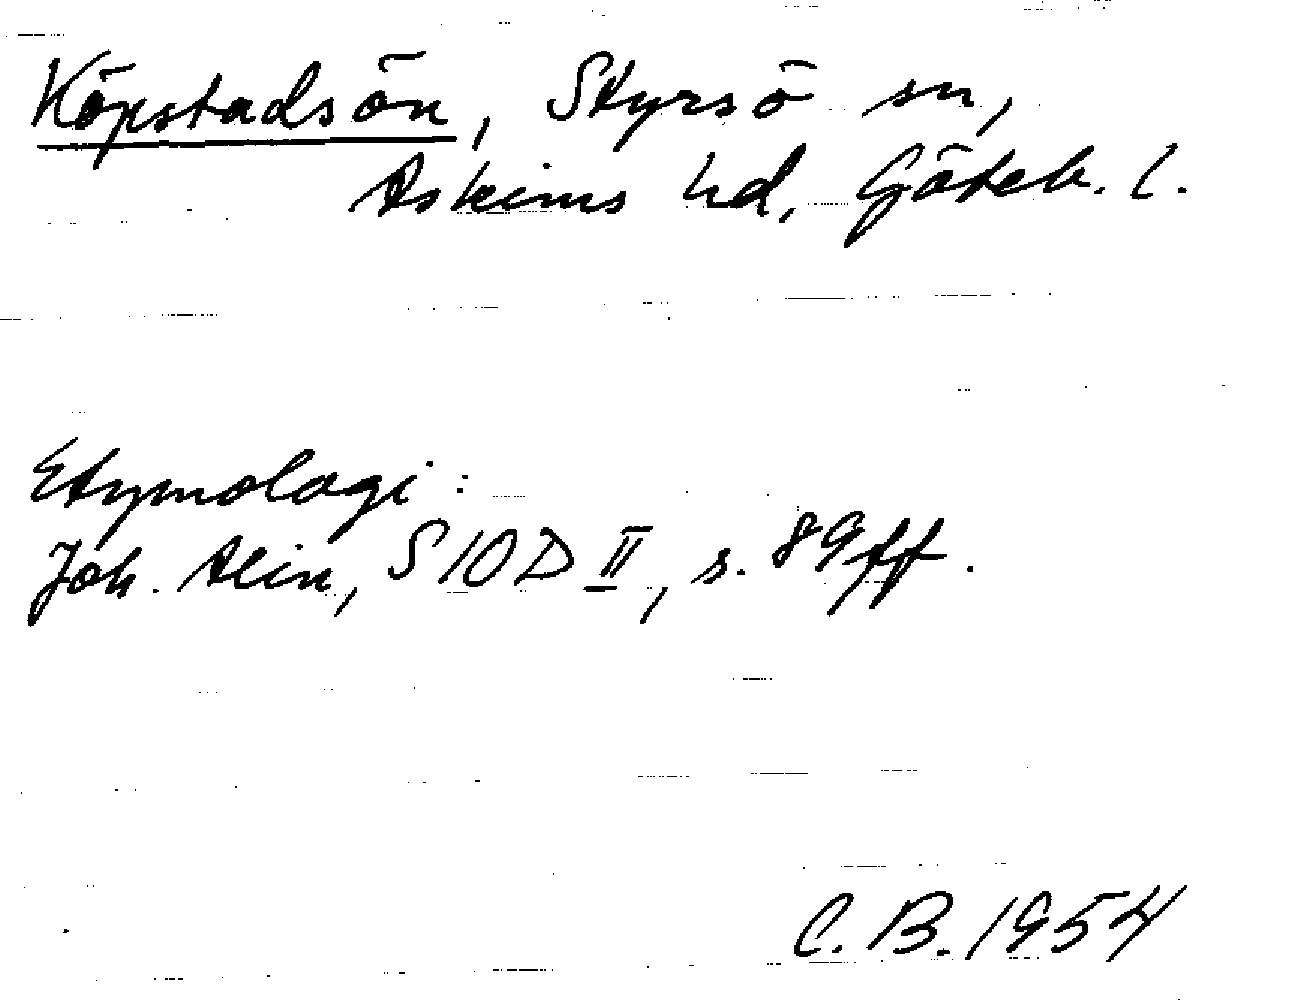 Köpstadsön, Styrsö sn,
Askims hd, Göteb. l.
Etymologi:
Joh. Alin, SIOD II, s. 89ff.
C. B. 1954